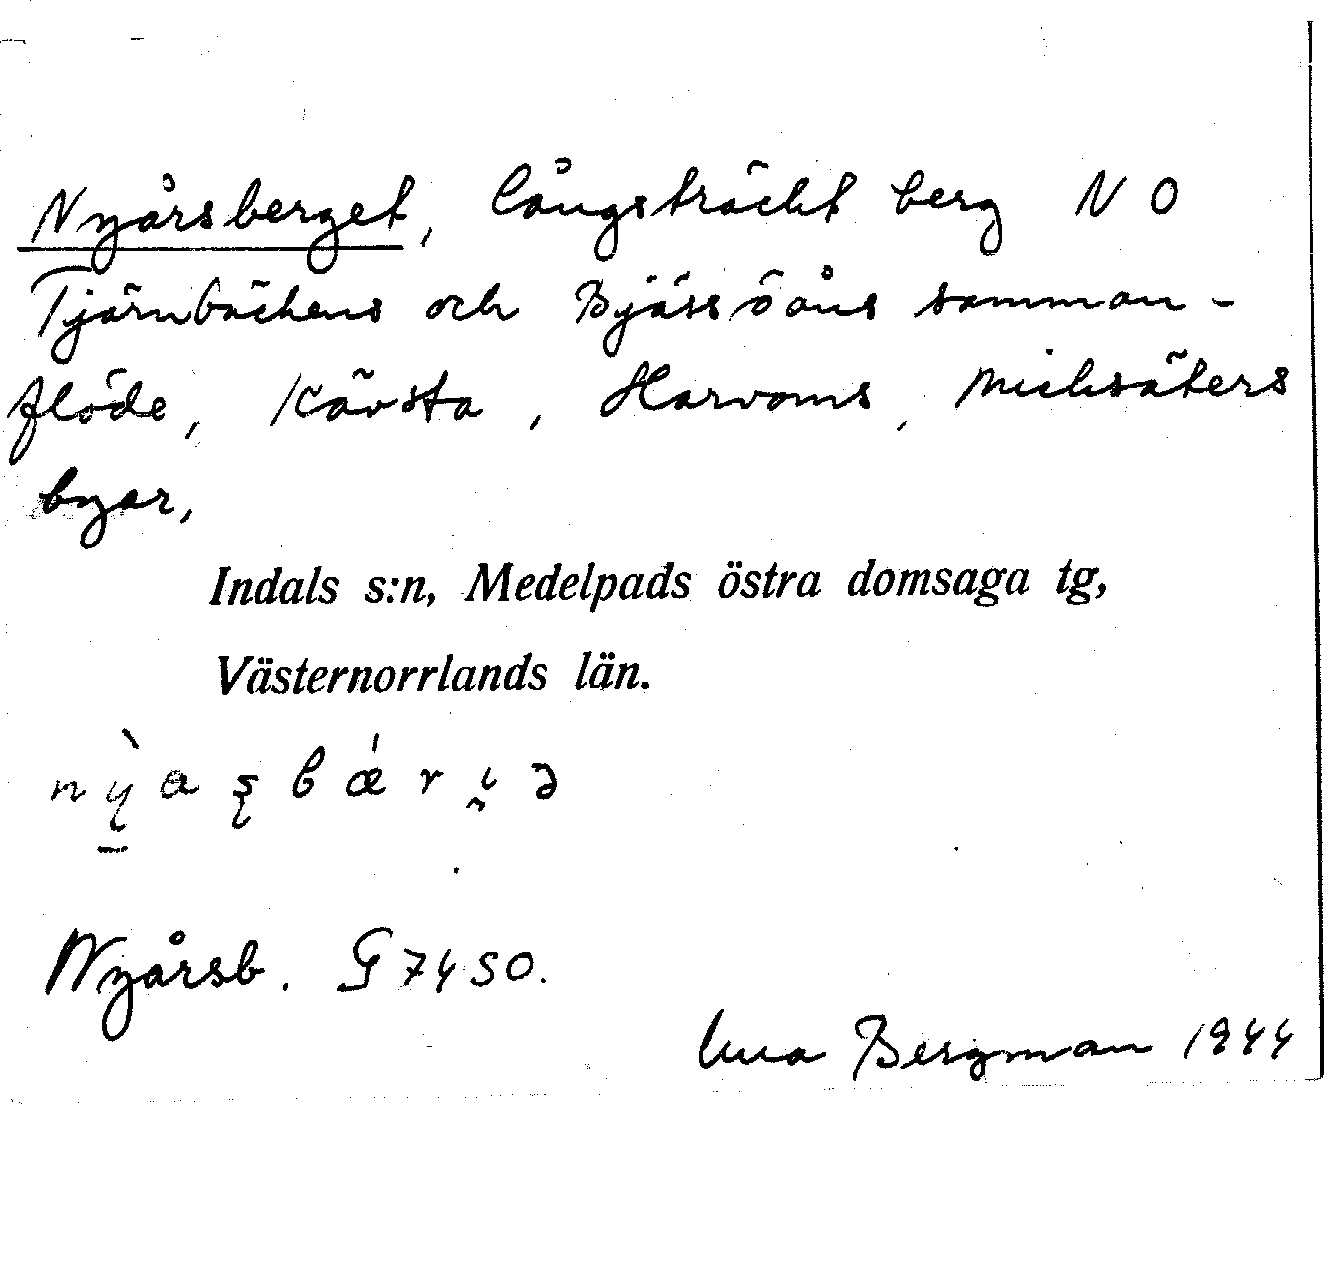 Nyårsberget, långsträckt berg N O
Tjärnbäckens och Bjässöåns samman-
flöde, Kävsta, Harvoms, Michsäters
byar,
Indals s:n, Medelpads östra domsaga tg,
Västernorrlands län.
Nyårsb. G 7450.
Bergman 1944